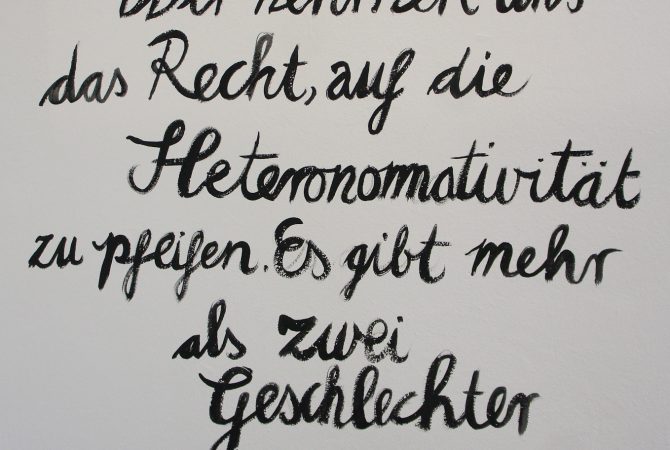 nehmen uns
das Recht, auf die
Heteronormativität
zu pfeifen. Es gibt mehr
als zwei
Geschlechter